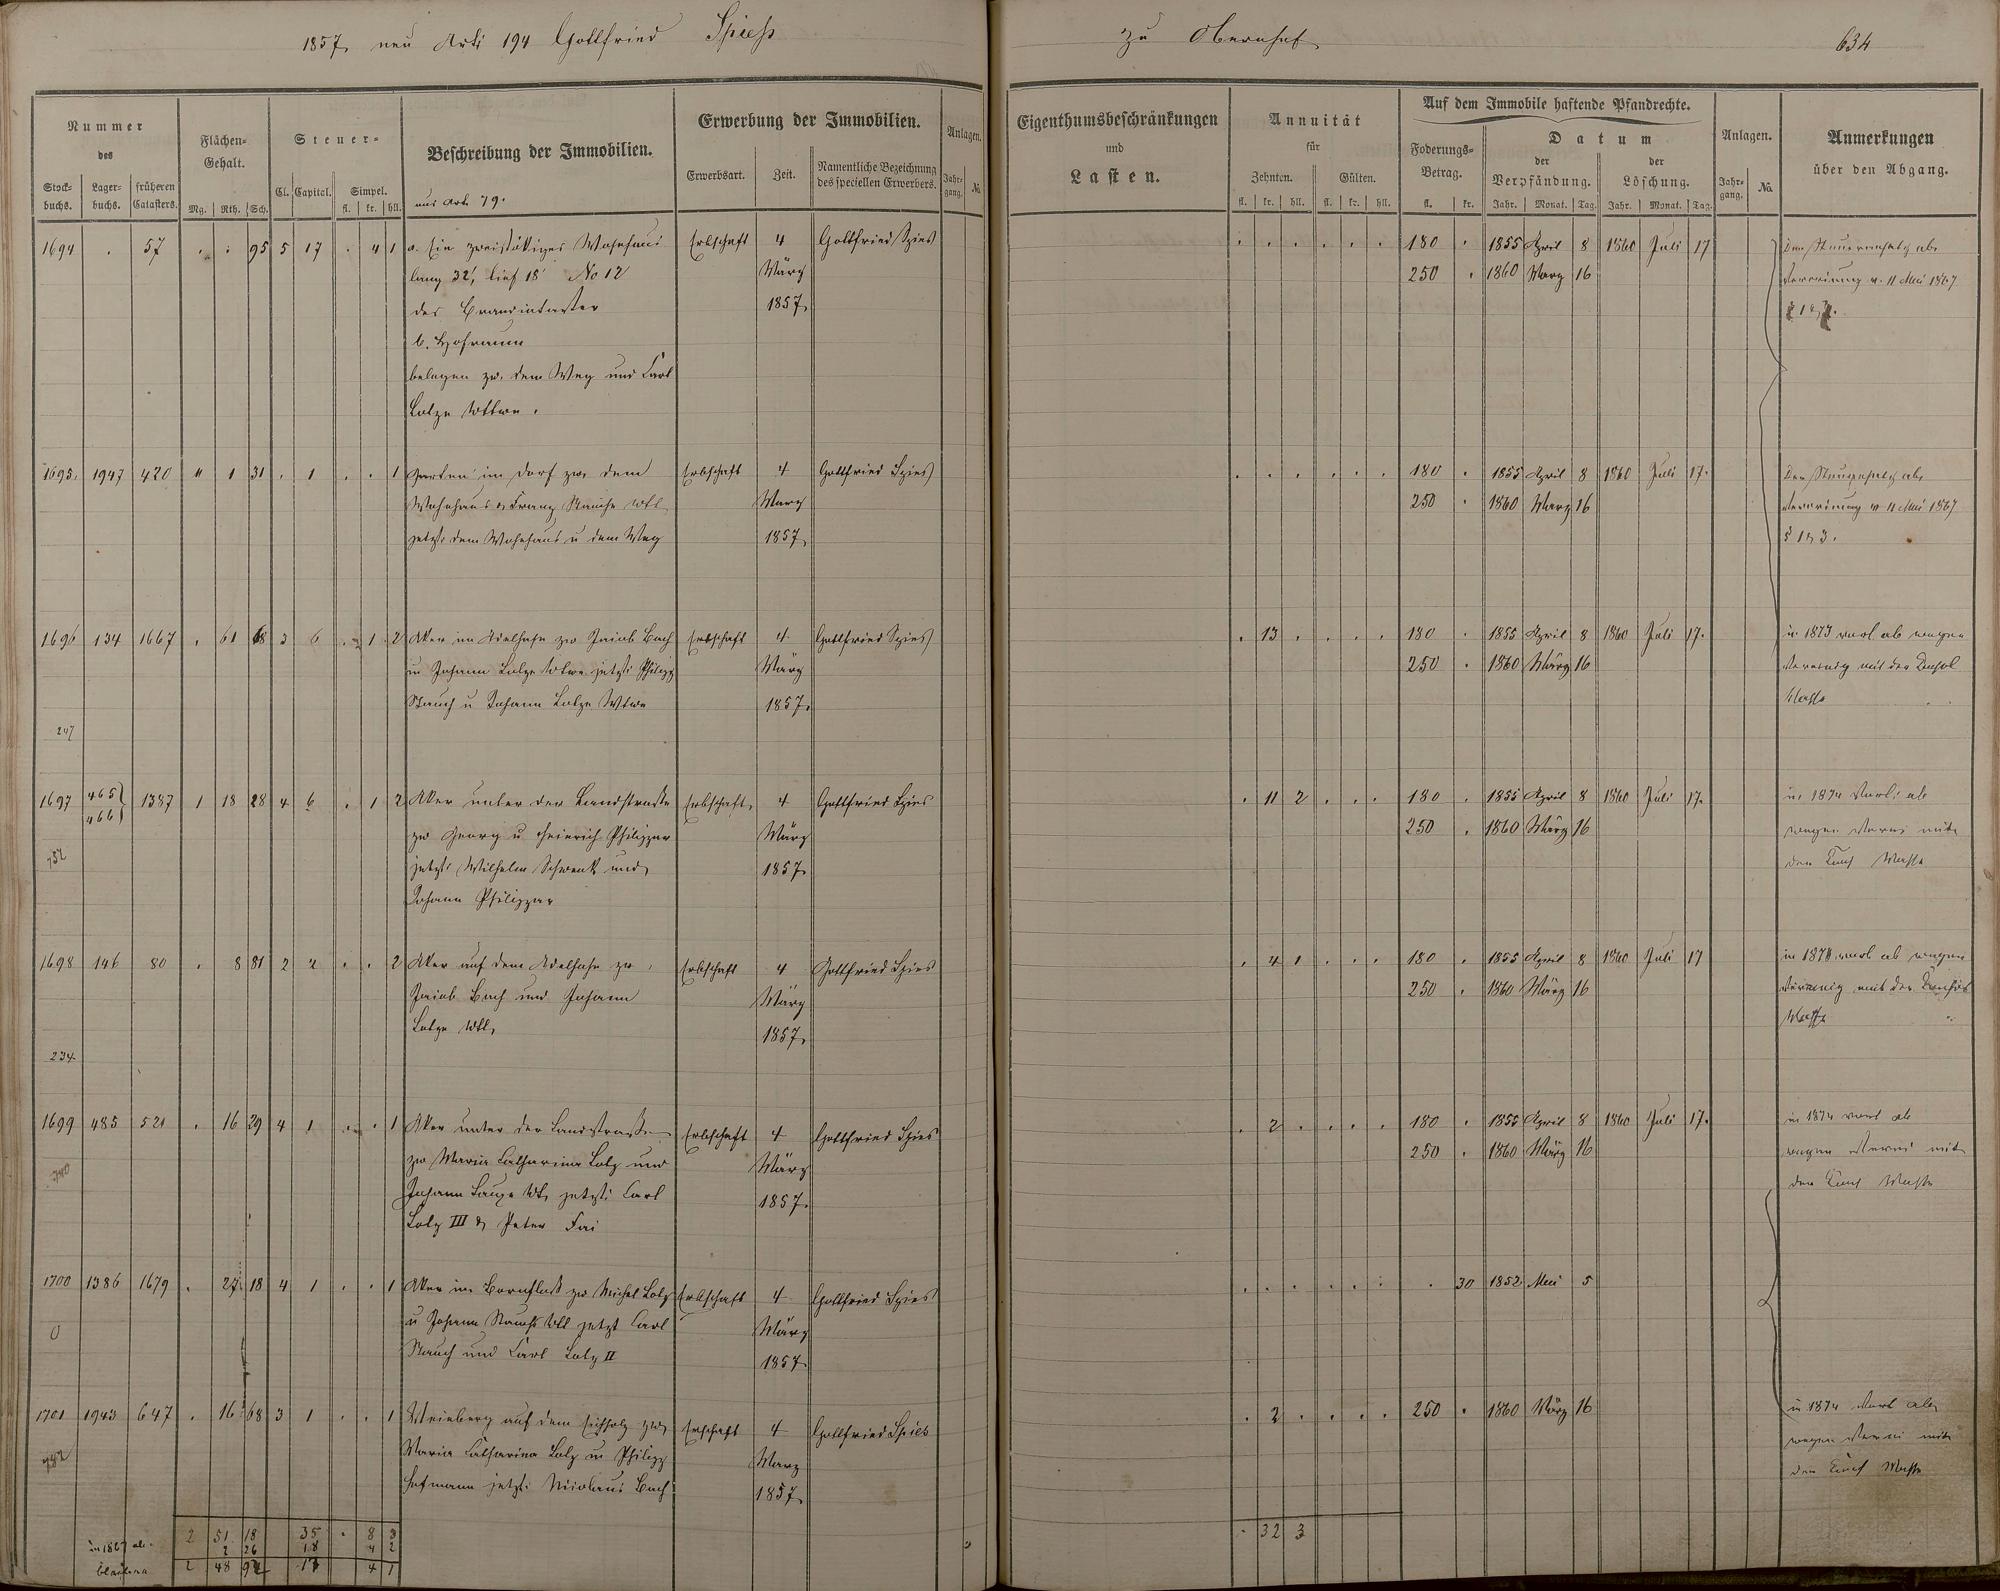 1857, neu Arti 194 Gottfried Spiess zu Obernhof 634
Nummer des
Stock-buchs. Lager-buchs. früheren Catasters.
Flächen-Gehalt.
Mg. Rth. Sch.
Steuer-
Cl. Capital. Simpel.
fl. kr. hll.
Beschreibung der Immobilien.
aus Art. 79.
Erwerbung der Immobilien.
Erwerbsart. Zeit. Namentliche Bezeichnung des speciellen Erwerbers.
Anlagen.
Jahr-gang. No.
Eigenthumsbeschränkungen
und
Lasten.
Annuität
für
Zehnten. Gülten.
fl. kr. hll. fl. kr. hll.
Auf dem Immobile haftende Pfandrechte.
Foderungs-Betrag. Datum
der Verpfändung. der Löschung.
fl. kr. Jahr. Monat. Tag. Jahr. Monat. Tag.
Anlagen.
Jahr-gang. No.
Anmerkungen
über den Abgang.
1694 . 57 . . 95 5 17 . 4 1 a. Ein zweistökiges Wohnhaus Erbschaft 4 Gottfried Spies 180 . 1855 April 8 1860 Juli 17
lang 32', tief 18' No 12 März 250 . 1860 März 16 Verordnung v. 11 Mai 1867
des Brandcataster 1857,
b. Hofraum
belegen zw. dem Weg und Carl
Lotze Wittwe.
1695. 1947 420 " 1 31 . 1 . . 1 Garten im Dorf zw. dem Erbschaft 4 Gottfried Spies 180 . 1855 April 8 1860 Juli 17.
Wohnhaus & Franz Wtb März 250 . 1860 März 16 Verordnung v 11 Mai 1867
jetzt: dem Wohnhaus u dem Weg 1857, § 1 & 3.
1696 134 1667 . 61 68 3 6 . . 1 2 Aker im Adelhahn zw Jacob Bach Erbschaft 4 Gottfried Spies . 13 . . . . 180 . 1855 April 8 1860 Juli 17. in 1873 ab wegen
u Johann Lotze Wtwe jetzt: Philipp März 250 . 1860 März 16 mit der Consol
Stauch u Johann Lotze Wtwe 1857. Masse
247
1697 465 466 1387 1 18 28 4 6 . 1 2 Aker unter der Landstraße Erbschaft 4 Gottfried Spies . 11 2 . . . 180 . 1855 April 8 1860 Juli 17. in 1874 ab
zw Georg u Heinrich Philippar März 250 . 1860 März 16 wegen mit
752 jetzt: Wilhelm Schwenk und 1857, der Masse
Johann Philippar
1698 146 80 . 8 81 2 2 . . 2 Aker auf dem Adelhahn zw. Erbschaft 4 Gottfried Spies . 4 1 . . . 180 . 1855 April 8 1860 Juli 17 in 1874 ab wegen
Jacob Bach und Johann März 250 . 1860 März 16 mit der
Lotze Wtb, 1857, Masse
234
1699 485 521 . 16 29 4 1 . . 1 Aker unter der Landstraße Erbschaft 4 Gottfried Spies . 2 . . . . 180 . 1855 April 8 1860 Juli 17. in 1874 ab
740 zw Maria Catharina Lotz und März 250 . 1860 März 16 wegen mit
Johann Wtb, jetzt: Carl 1857. der Masse
Lotz III & Peter
1700 1386 1679 . 27 18 4 1 . . 1 Aker im zw Michel Lotz Erbschaft 4 Gottfried Spies . 30 1852 Mai 5
0 u Johann Stauch Wtb jetzt Carl März
Stauch und Carl Lotz II 1857,
1701 1943 647 . 16 68 3 1 . . 1 Weinberg auf dem Eichholz zw, Erschaft 4 Gottfried Spies . 2 . . . . 250 . 1860 März 16 in 1874 ab
782 Maria Catharina Lotz u Philipp März wegen mit
Hofmann jetzt: Nicolaus Bach 1857, der Masse
2 51 18 35 . 8 3 . 32 3
in 1867 ab. 2 26 18 4 2
bleiben 2 48 92 17 4 1